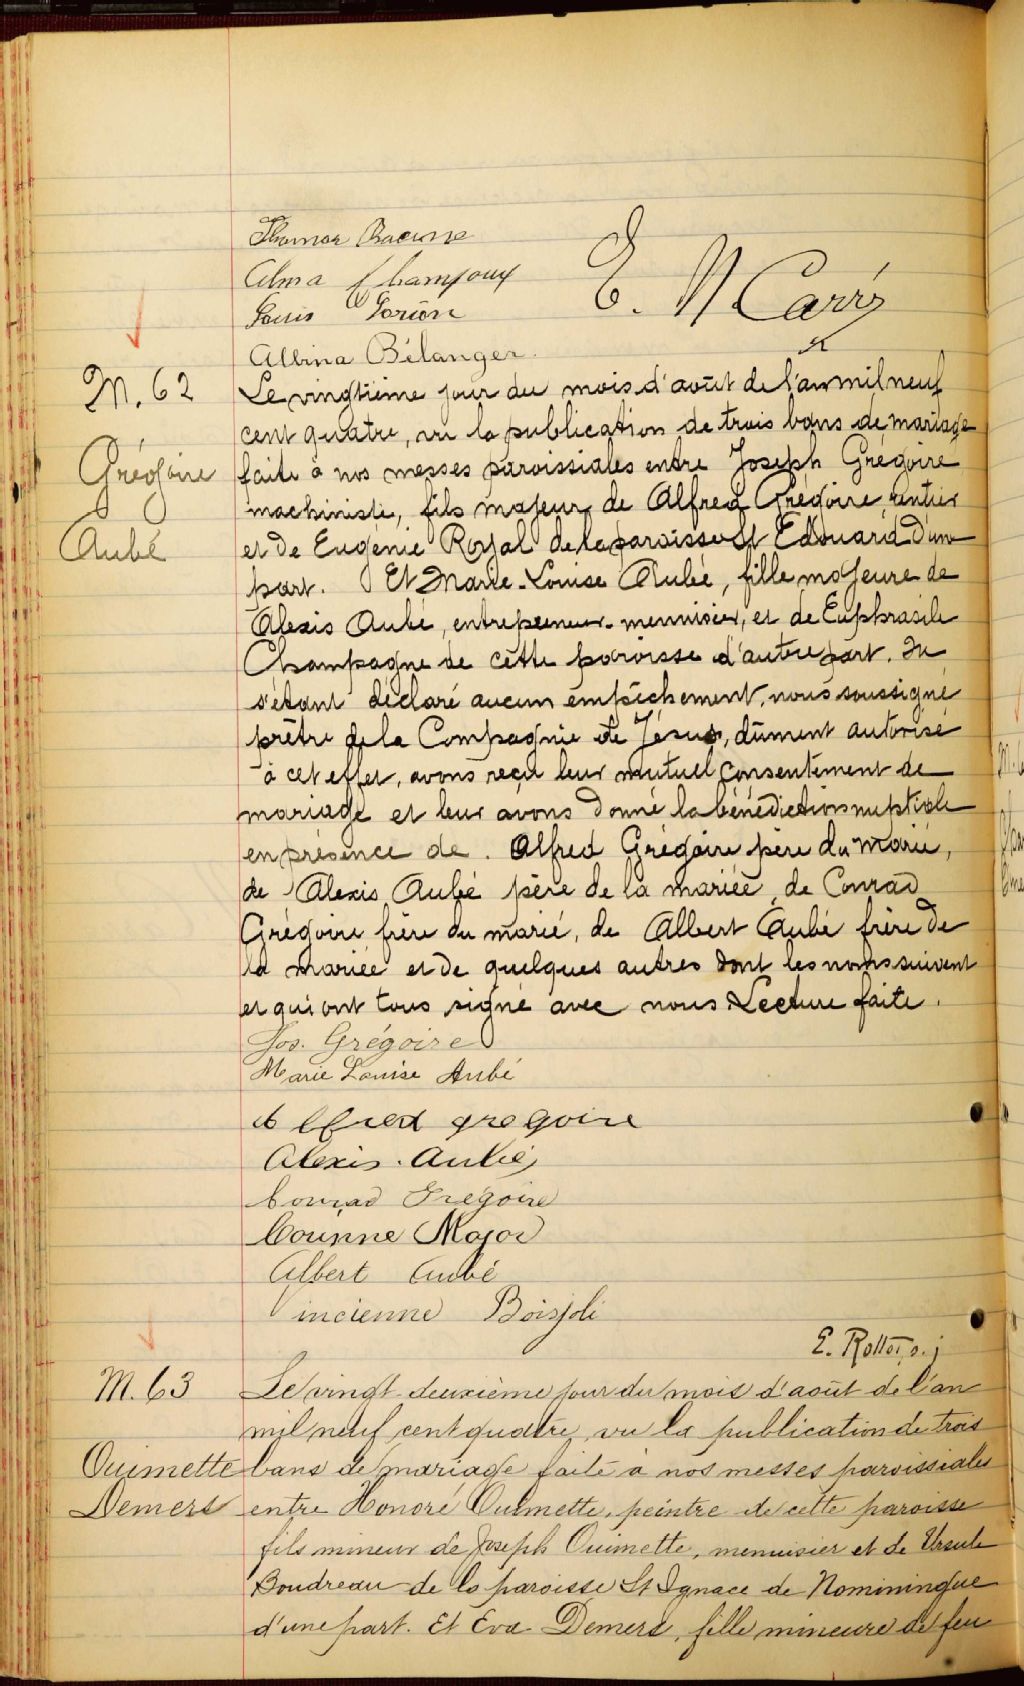 Thomas
Alma
Louis
Albina Bélanger
E. N. Carré
M. 62
Grégoire
Aubé
Le vingtième jour du mois d'août de l'an mil neuf
cent quatre, vu la publication de trois bans de mariage
faite à nos messes paroissiales entre Joseph Grégoire
machiniste, fils majeur de Alfred Grégoire, rentier
et de Eugenie Royal de la paroisse St Edouard d'une
part. Et Marie-Louise Aubé, fille majeure de
Alexis Aubé, entrepreneur-menuisier, et de Euphrasile
Champagne de cette paroisse d'autre part. Ne
s'étant déclaré aucun empêchement, nous soussigné
prêtre de la Compagnie de Jésus, dûment autorisé
à cet effet, avons reçu leur mutuel consentement de
mariage et leur avons donné la bénédiction nuptiale
en présence de. Alfred Grégoire père du marié,
de Alexis Aubé père de la mariée, de Conrad
Grégoire frère du marié, de Albert Aubé frère de
la mariée et de quelques autres dont les noms suivent
et qui ont tous signé avec nous. Lecture faite.
Jos. Grégoire
Marie Louise Aubé
Alfred gregoire
Alexis. Aubé
Conrad Grégoire
Corinne Major
Albert Aubé
Vincienne Boisjoli
E.
M. 63
Ouimette
Demers
Le vingt-deuxième jour du mois d'août de l'an
mil neuf cent quatre, vu la publication de trois
bans de mariage faite à nos messes paroissiales
entre Honoré Ouimette, peintre de cette paroisse
fils mineur de Joseph Ouimette, menuisier et de Ursule
Boudreau de la paroisse St Ignace de Nominingue
d'une part. Et Eva Demers, fille mineure de feu